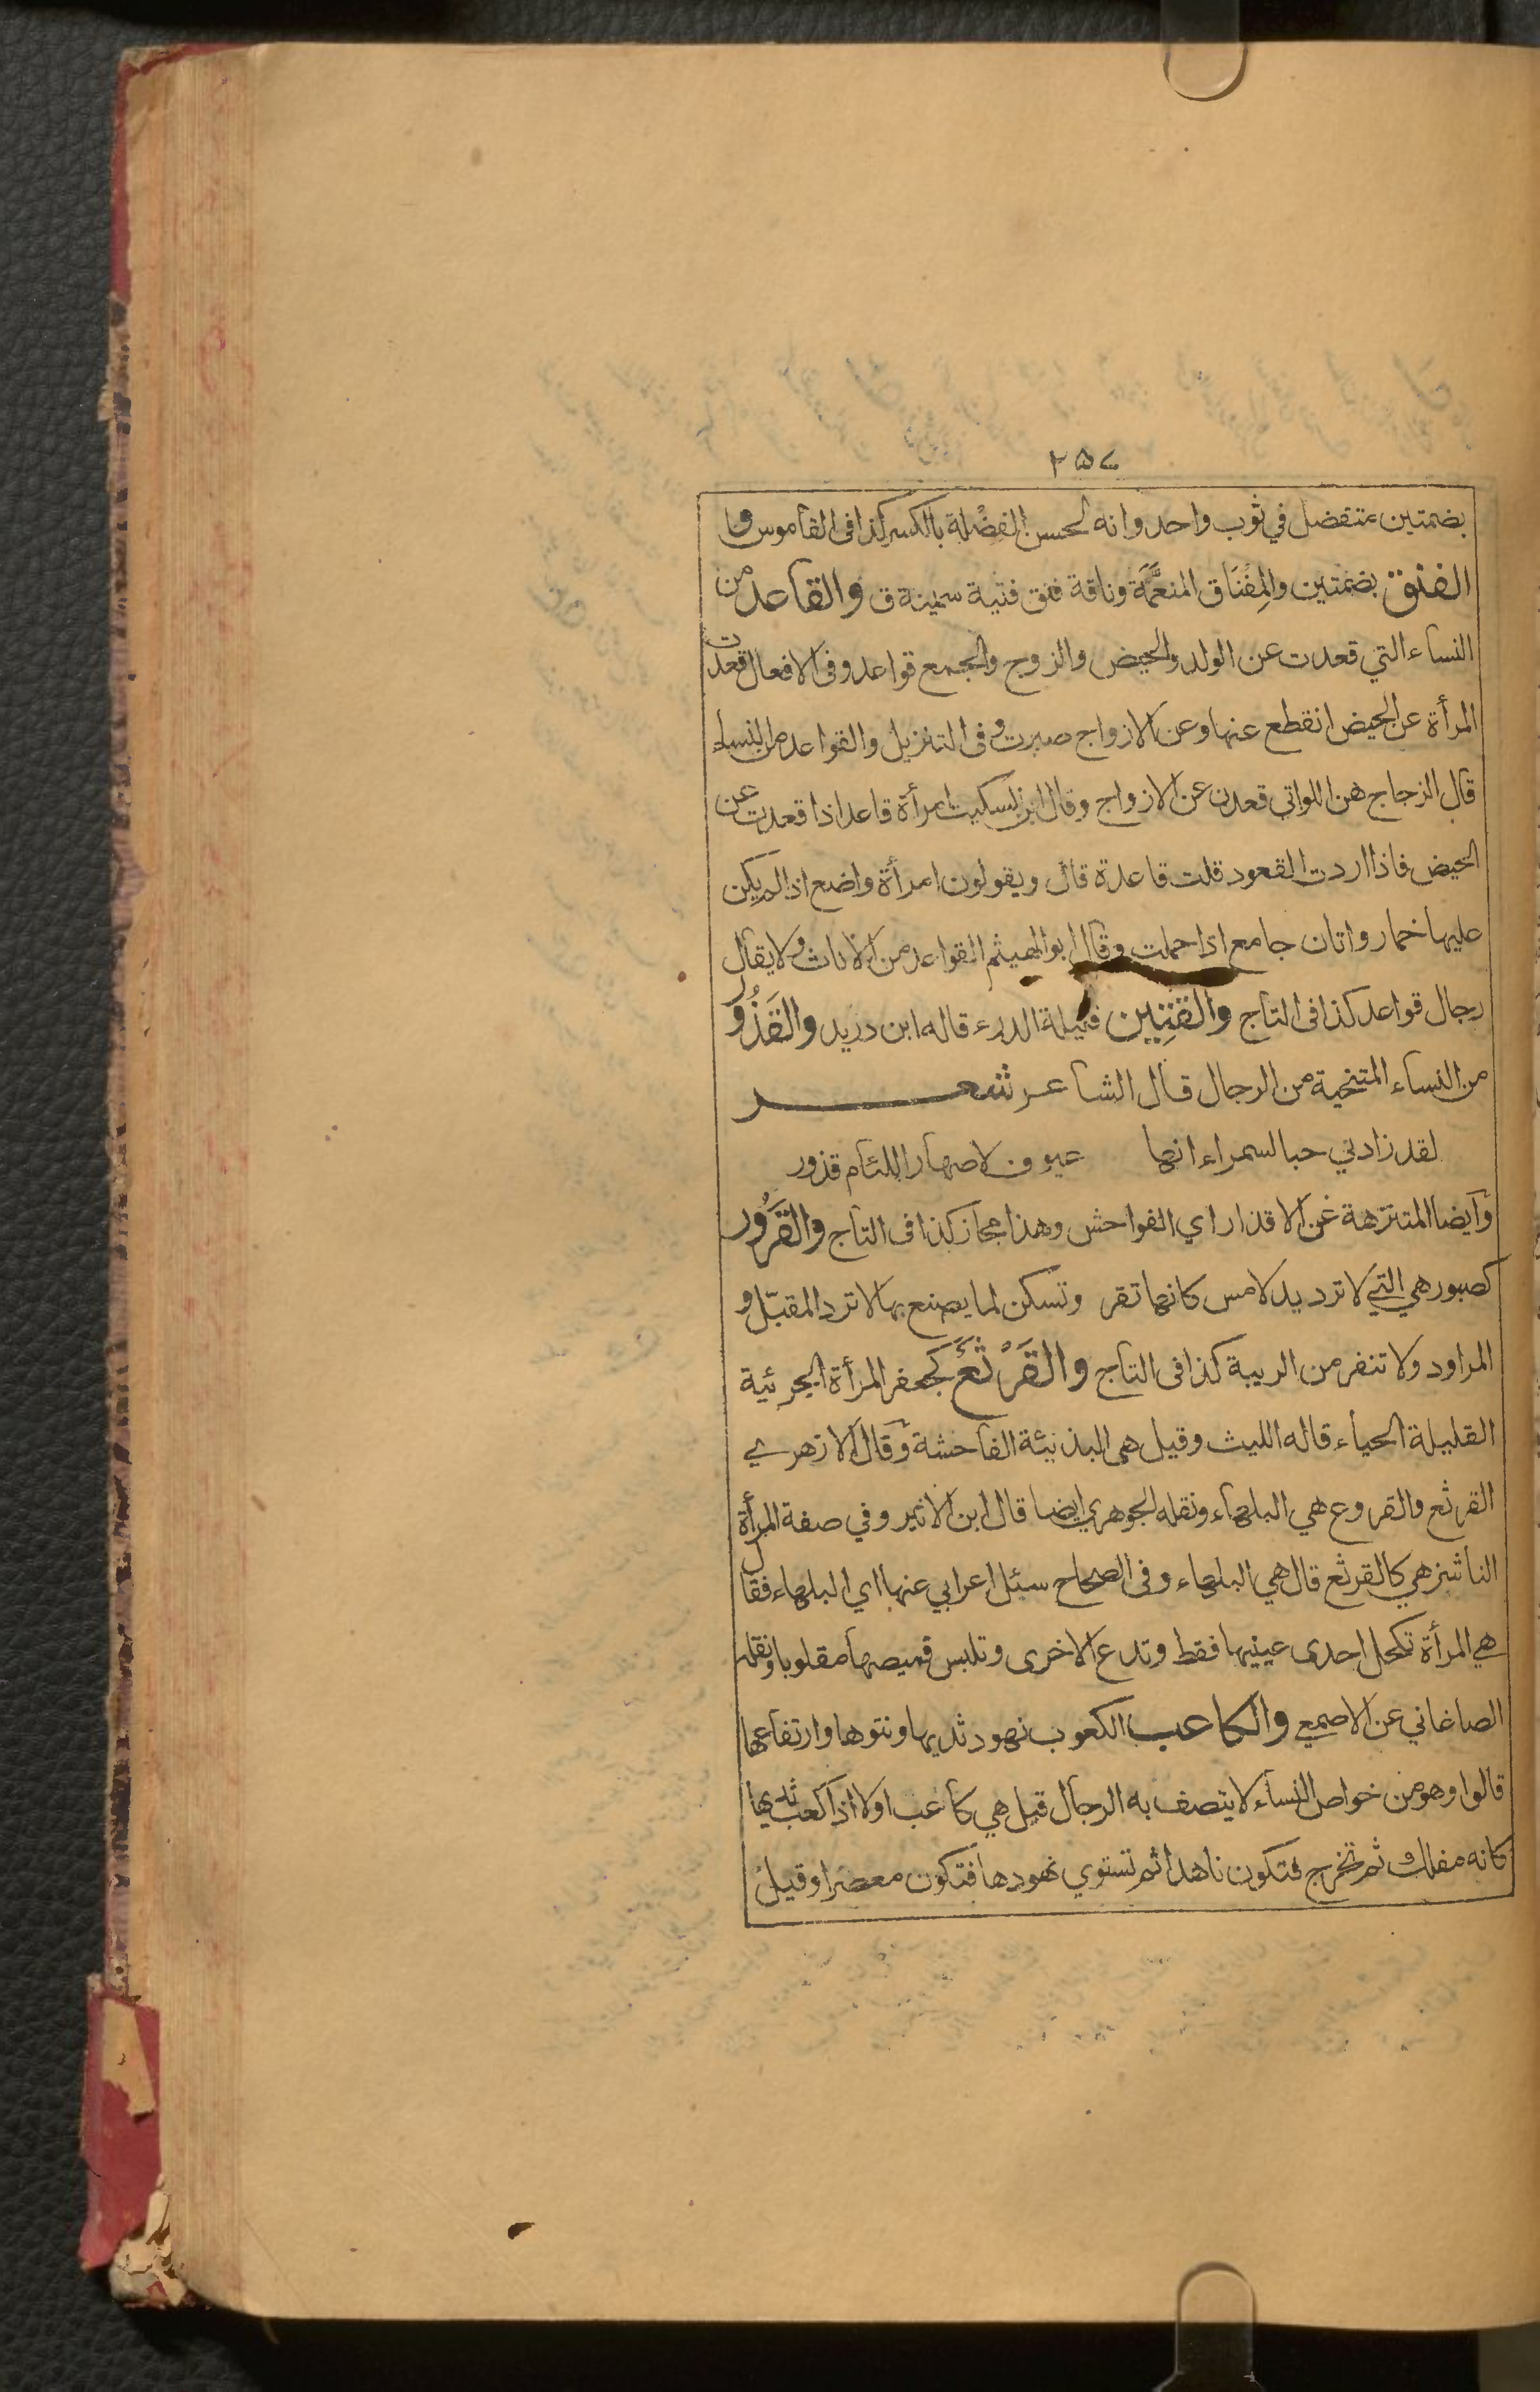 ٢٥٧
بضمتين متفضل في ثوب واحد وانه لحسن الفِضْلة بالكسر كذا فى القاموس و
الفنق بضمتين والمِفْنَاق المنعَّمَة وناقة فنق فتية سمينة ق والقاعد من
النساء التي قعدت عن الولد والحيض والزوج والجمع قواعد وفى الافعال قعدت
المرأة عن الحيض انقطع عنها وعن الازواج صبرت وفى التنزيل والقواعد من النساء
قال الزجاج هن اللواتي قعدن عن الازواج وقال ابن السكيت امرأة قاعد اذا قعدت عن
الحيض فاذا اردت القعود قلت قاعدة قال ويقولون امرأة واضع اذا لم يكن
عليها خمار واتان جامع اذا حملت وقال ابو الهيثم القواعد من الاناث ولا يقال
رجال قواعد كذا فى التاج والقَتِين قليلة الدرء قاله ابن دريد والقَذُور
من النساء المتنحية من الرجال قال الشاعر شعر
لقد زادني حبا لسمراء انها عيوف لاصهار اللئام قذور
وايضا المتنزهة عن الاقذار اي الفواحش وهذا مجاز كذا فى التاج والقَرُور
كصبور هي التي لا ترد يد لامس كانها تقر وتسكن لما يصنع بها لا ترد المقبّل و
المراود ولا تنفر من الريبة كذا فى التاج والقَرْثَع كجعفر المرأة الجرئية
القليلة الحياء قاله الليث وقيل هى البذيئة الفاحشة وقال الازهري
القرثع والقروع هي البلهاء ونقله الجوهري ايضا قال ابن الاثير وفي صفة المرأة
الناشز هي كالقرثع قال هي البلهاء وفى الصحاح سئل اعرابي عنها اي البلهاء فقال
هي المرأة تكحل احدى عينيها فقط وتدع الاخرى وتلبس قميصها مقلوبا ونقله
الصاغاني عن الاصمعي والكاعب الكعوب نهود ثديها ونتوها وارتفاعها
قالوا وهو من خواص النساء لا يتصف به الرجال قيل هي كاعب اولا اذا كعب ثديها
كانه مفلك ثم تخرج فتكون ناهدا ثم تستوي نهودها فتكون معصرا وقيل